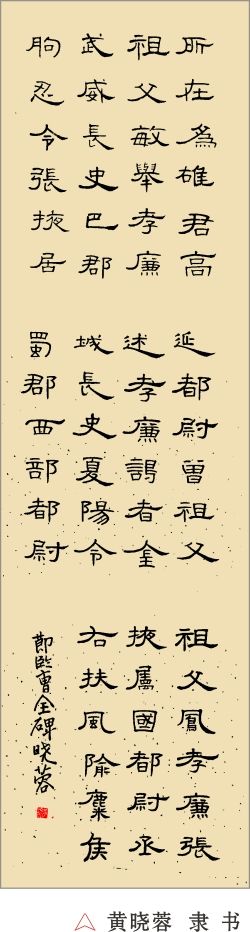 所在為雄君高
祖父敏舉孝廉
武威長史巴郡
朐忍令張掖居
延都尉曾祖父
述孝廉謁者金
城長史夏陽令
蜀郡西部都尉
祖父鳳孝廉張
掖屬國都尉丞
右扶風隃麋侯
節臨曹全碑晓蓉
黄晓蓉 隶书